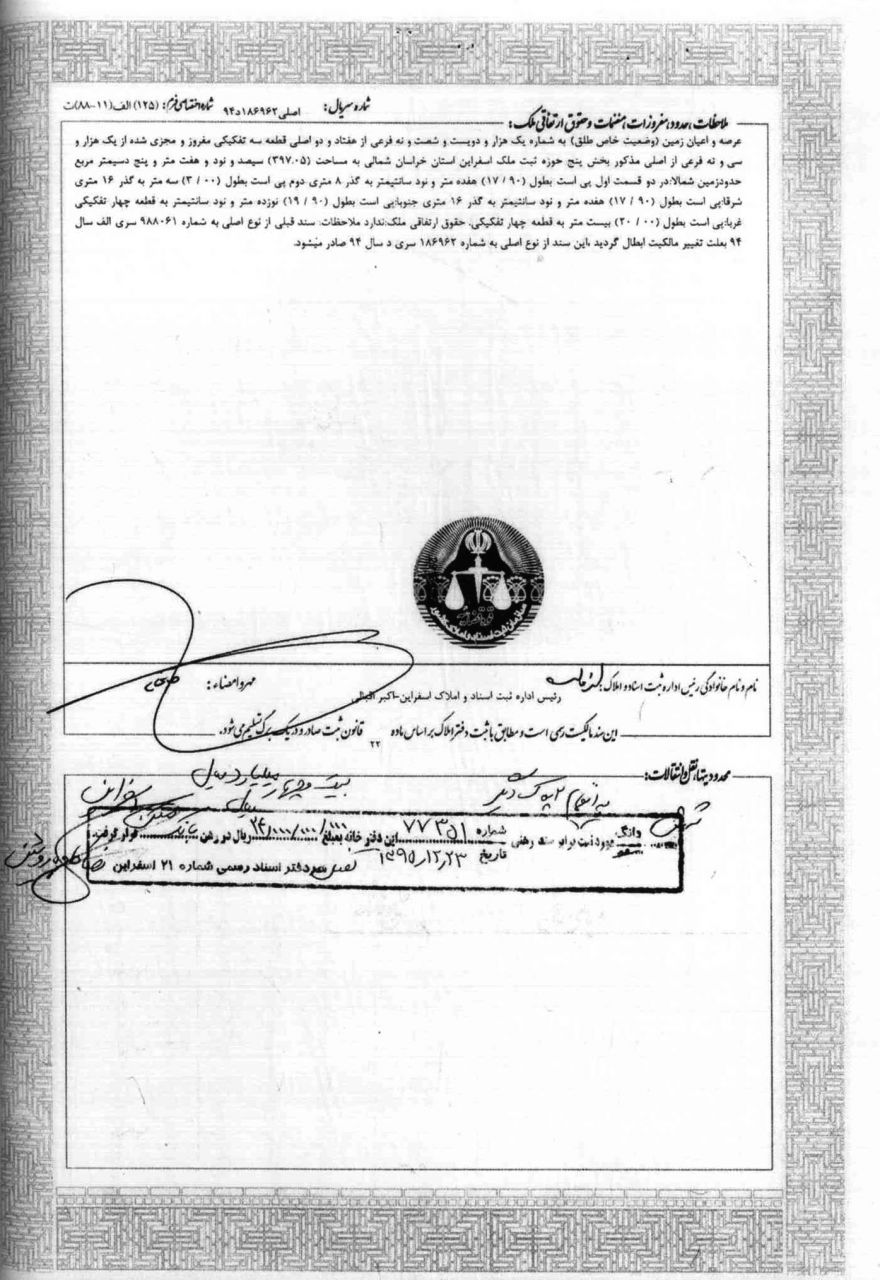 شماره سریال: اصلی ۱۸۶۹۶۲ د ۹۴ شماره اختصاصی فرم: (۱۲۵) الف (۱۱-۸۸)ت
ملاحظات، حدود، مفروزات، منضمات و حقوق ارتفاقی ملک:
عرصه و اعیان زمین (وضعیت خاص طلق) به شماره یک هزار و دویست و شصت و نه فرعی از هفتاد و دو اصلی قطعه سه تفکیکی مفروز و مجزی شده از یک هزار و
سی و نه فرعی از اصلی مذکور بخش پنج حوزه ثبت ملک اسفراین استان خراسان شمالی به مساحت (۳۹۷.۰۵) سیصد و نود و هفت متر و پنج دسیمتر مربع
حدودزمین شمالا:در دو قسمت اول پی است بطول (۹۰ / ۱۷) هفده متر و نود سانتیمتر به گذر ۸ متری دوم پی است بطول (۰۰ / ۳) سه متر به گذر ۱۶ متری
شرقا:پی است بطول (۹۰ / ۱۷) هفده متر و نود سانتیمتر به گذر ۱۶ متری جنوبا:پی است بطول (۹۰ / ۱۹) نوزده متر و نود سانتیمتر به قطعه چهار تفکیکی
غربا:پی است بطول (۰۰ / ۲۰) بیست متر به قطعه چهار تفکیکی. حقوق ارتفاقی ملک:ندارد ملاحظات: سند قبلی از نوع اصلی به شماره ۹۸۸۰۶۱ سری الف سال
۹۴ بعلت تغییر مالکیت ابطال گردید ،این سند از نوع اصلی به شماره ۱۸۶۹۶۲ سری د سال ۹۴ صادر میشود.
نام و نام خانوادگی رئیس اداره ثبت اسناد و املاک:
مهر و امضاء:
رئیس اداره ثبت اسناد و املاک اسفراین-اکبر
این سند مالکیت رسمی است و مطابق با ثبت دفتر املاک بر اساس ماده ۲۲ قانون ثبت صادر و در یک برگ تسلیم می شود.
محدودیتها، نقل و انتقالات:
بیست و چهار میلیارد ریال
به انضمام ۲ پلاک دیگر
شش دانگ
برابر سند رهنی شماره ۷۷۳۵۱ این دفتر خانه بمبلغ ۲۴/۰۰۰/۰۰۰/۰۰۰ ریال در رهن بانک قرار گرفت.
تاریخ ۱۳۹۵/۱۲/۲۳
سردفتر اسناد رسمی شماره ۲۱ اسفراین